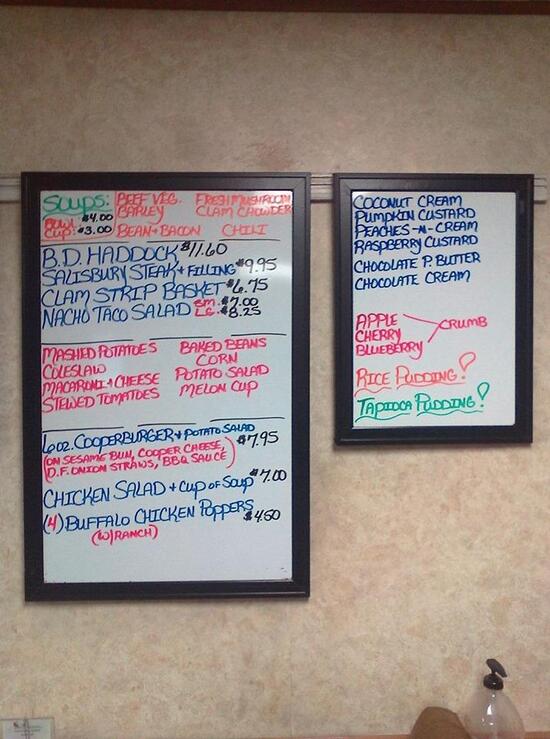 SOUPS:
BOWL $4.00
CUP: $3.00
BEEF VEG. BARLEY
FRESH MUSHROOM
CLAM CHOWDER
BEAN + BACON
CHILI
B.D. HADDOCK $11.60
SALISBURY STEAK + FILLING $9.95
CLAM STRIP BASKET $6.75
NACHO TACO SALAD SM. $7.00
LG. $8.25
MASHED POTATOES
COLESLAW
MACARONI + CHEESE
STEWED TOMATOES
BAKED BEANS
CORN
POTATO SALAD
MELON CUP
6OZ. COOPERBURGER + POTATO SALAD $7.95
(ON SESAME BUN, COOPER CHEESE,
D.F. ONION STRAWS, BBQ SAUCE)
CHICKEN SALAD + CUP OF SOUP $7.00
(4) BUFFALO CHICKEN POPPERS $4.50
(W/RANCH)
COCONUT CREAM
PUMPKIN CUSTARD
PEACHES -N- CREAM
RASPBERRY CUSTARD
CHOCOLATE P. BUTTER
CHOCOLATE CREAM
APPLE
CHERRY CRUMB
BLUEBERRY
RICE PUDDING!
TAPIOCA PUDDING!